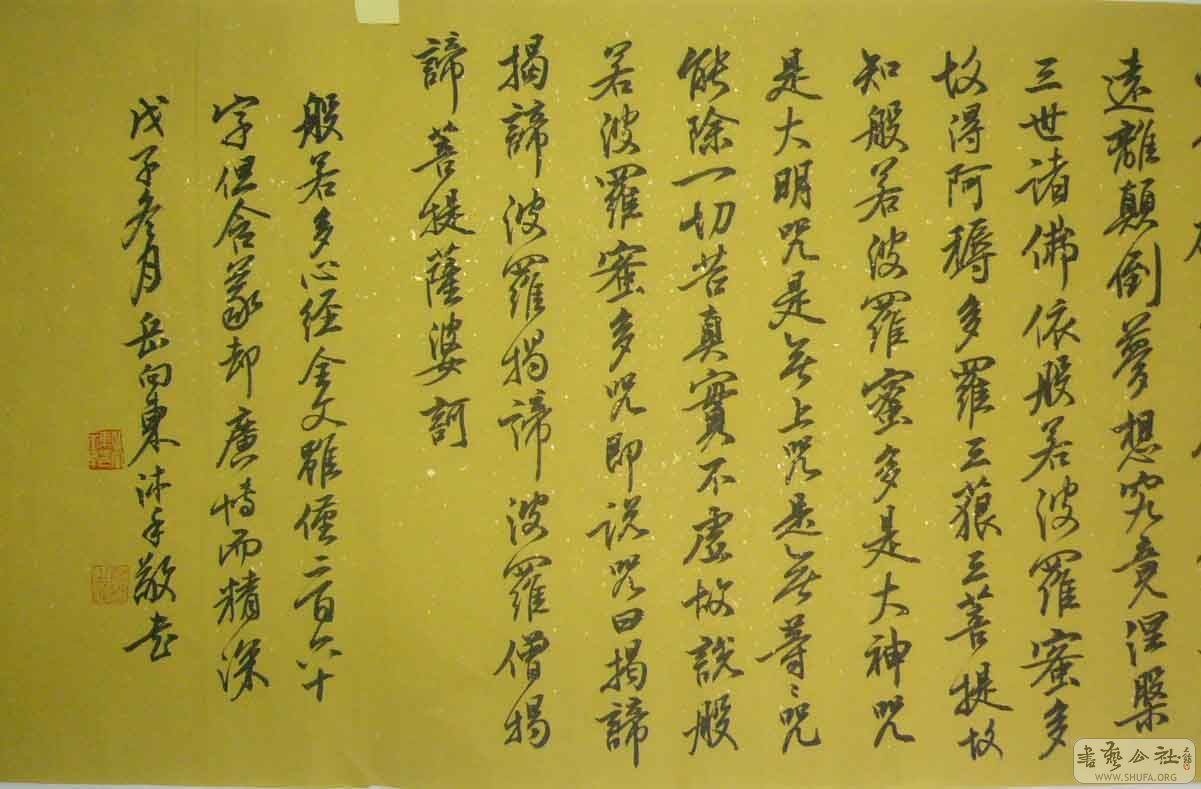 遠離顛倒夢想究竟涅槃
三世諸佛依般若波羅蜜多
故得阿耨多羅三藐三菩提故
知般若波羅蜜多是大神咒
是大明咒是無上咒是無等〻咒
能除一切苦真實不虛故說般
若波羅蜜多咒即說咒曰揭諦
揭諦波羅揭諦波羅僧揭
諦菩提薩婆訶
般若多心经全文雖僅二百六十
字但含義却廣博而精深
戊子冬月岳向東沐手敬书
書藝公社
WWW.SHUFA.ORG